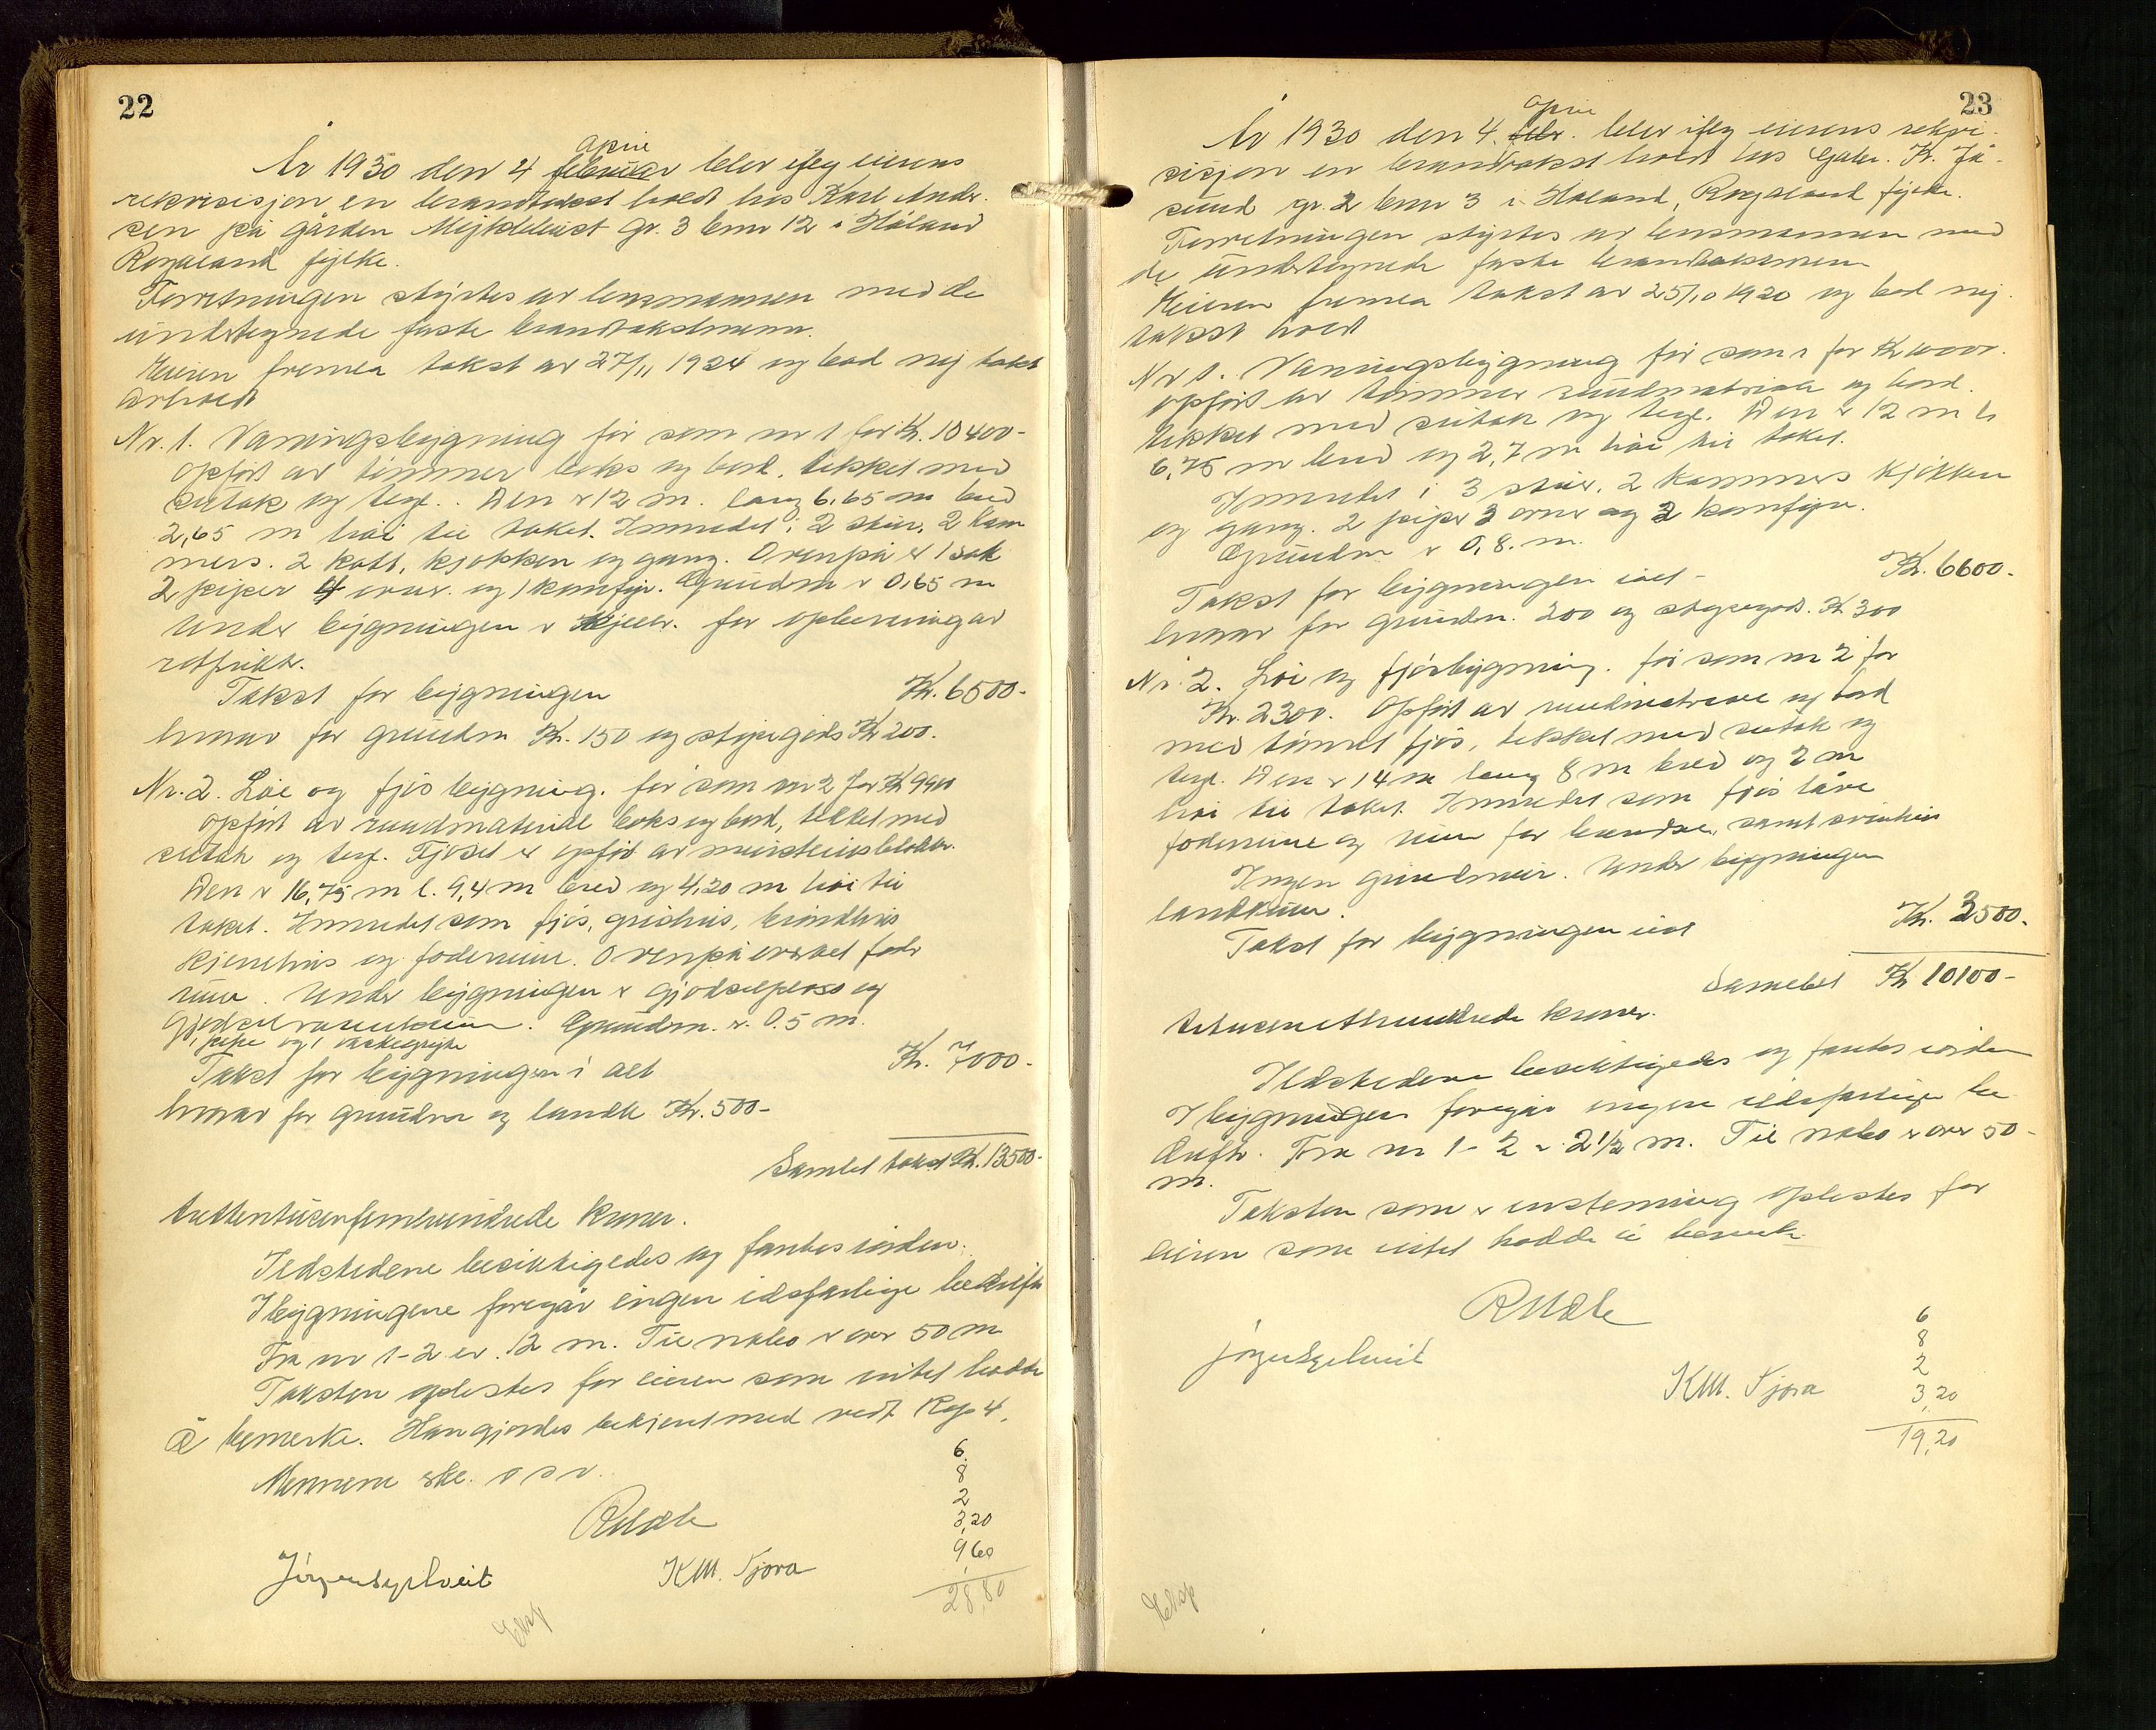 22
april
År 1930 den 4 februar blev ifølg eierens
rekvisisjon en brandtakst holdt hos Karl Ander-
sen på gården Myklebust gr. 3 bnr 12 i Håland
Rogaland fylke.
Forretningen styrtes av lensmannen med de
undertegnede faste brandtakstmenn.
Eieren fremla takst av 27/11 1924 og bad ny takst
avholdt
Nr. 1. Våningsbygning før som nr 1 for Kr. 10400-
opført av tømmer boks og bord, tekket med
sutak og tegl. Den er 12 m. lang 6,65 m bred
2,65 m høi til taket. Innredet i 2 stuer, 2 kam
mers. 2 kott, kjøkken og gang. Ovenpå er 1 sal
2 piper 4 ovner og 1 komfyr. Grundm er 0,65 m
Under bygningen er kjeller for opbevaring av
rotfrukter.
Takst for bygningen Kr. 6500-
herav for grundm Kr. 150 og støpegods Kr 200.
Nr. 2. Løe og fjøs bygning. før som nr 2 for Kr 9900
opført av rundmateriale boks og bord, tekket med
sutak og tegl. Fjøset er opført av mursteinsblokker.
Den er 16,75 m l. 9,4 m bred og 4,20 m høi til
taket. Innredet som fjøs, grishus,
og foderrum. Ovenpå foder
rum. Under bygningen er gjødselplass og
Grundm. er 0.5 m.
1 pipe og 1 vaskegryte
Takst for bygningen i alt Kr. 7000-
herav for grundm og Kr. 500-
Samlet takst Kr. 13500-
trettentusenfemhundrede kroner.
Ildstedene besiktigedes og fantes iorden.
I bygningene foregår ingen ildsfarlige bedrift
Fra nr 1-2 er 12 m. Til nabo er over 50 m
Taksten oplestes for eieren som intet hadde
å bemerke. Han gjordes bekjent med vedt. Kap 4.
Mennene
RMæle
Jörgen Sylveit K M. Tjora
6
8
2
3,20
9,60
28,80
23
april
År 1930 den 4. febr. blev ifølg eierens rekvi-
sisjon en brandtakst holdt hos Gabr. K. Jå-
sund gr. 2 bnr 3 i Håland, Rogaland fylke.
Forretningen styrtes av lensmannen med
de undertegnede faste brandtakstmenn
Eieren fremla takst av 25/10 1920 og bad ny
takst holdt
Nr 1. Våningsbygning før som 1 for Kr 10000.
opført av tømmer rundmateriale og bord.
tekket med sutak og tegl. Den er 12 m l.
6,75 m bred og 2,7 m høi til taket.
Innredet i 3 stuer, 2 kammers kjøkken
og gang. 2 piper 3 ovner og 2 komfyr.
Grundm er 0,8. m.
Takst for bygningen ialt - Kr. 6600-
herav for grundm. 200 og støpegods. Kr 300
Nr. 2. Løe og fjøsbygning. før som nr 2 for
Kr. 2300. Opført av rundmateriale og bord
med tømret fjøs, tekket med sutak og
tegl. Den er 14 m lang 8 m bred og 2 m
høi til taket. Innredet som fjøs låve
foderrum og rum for brendsel, samt svinhus
Ingen grundmur. Under bygningen
landkum.
Takst for bygningen ialt Kr. 3500-
Samlet Kr 10100-
titusenetthundrede kroner.
Ildstedene besiktigedes og fantes iorden
I bygningen foregår ingen ildsfarlige be
drift. Fra nr 1-2 er 2 1/2 m. Til nabo er over 50
m.
Taksten som er enstemmig oplestes for
eieren som intet hadde å bemerke
RMæle
Jörgen Sylveit
K M. Tjora
6
8
2
3,20
19,20